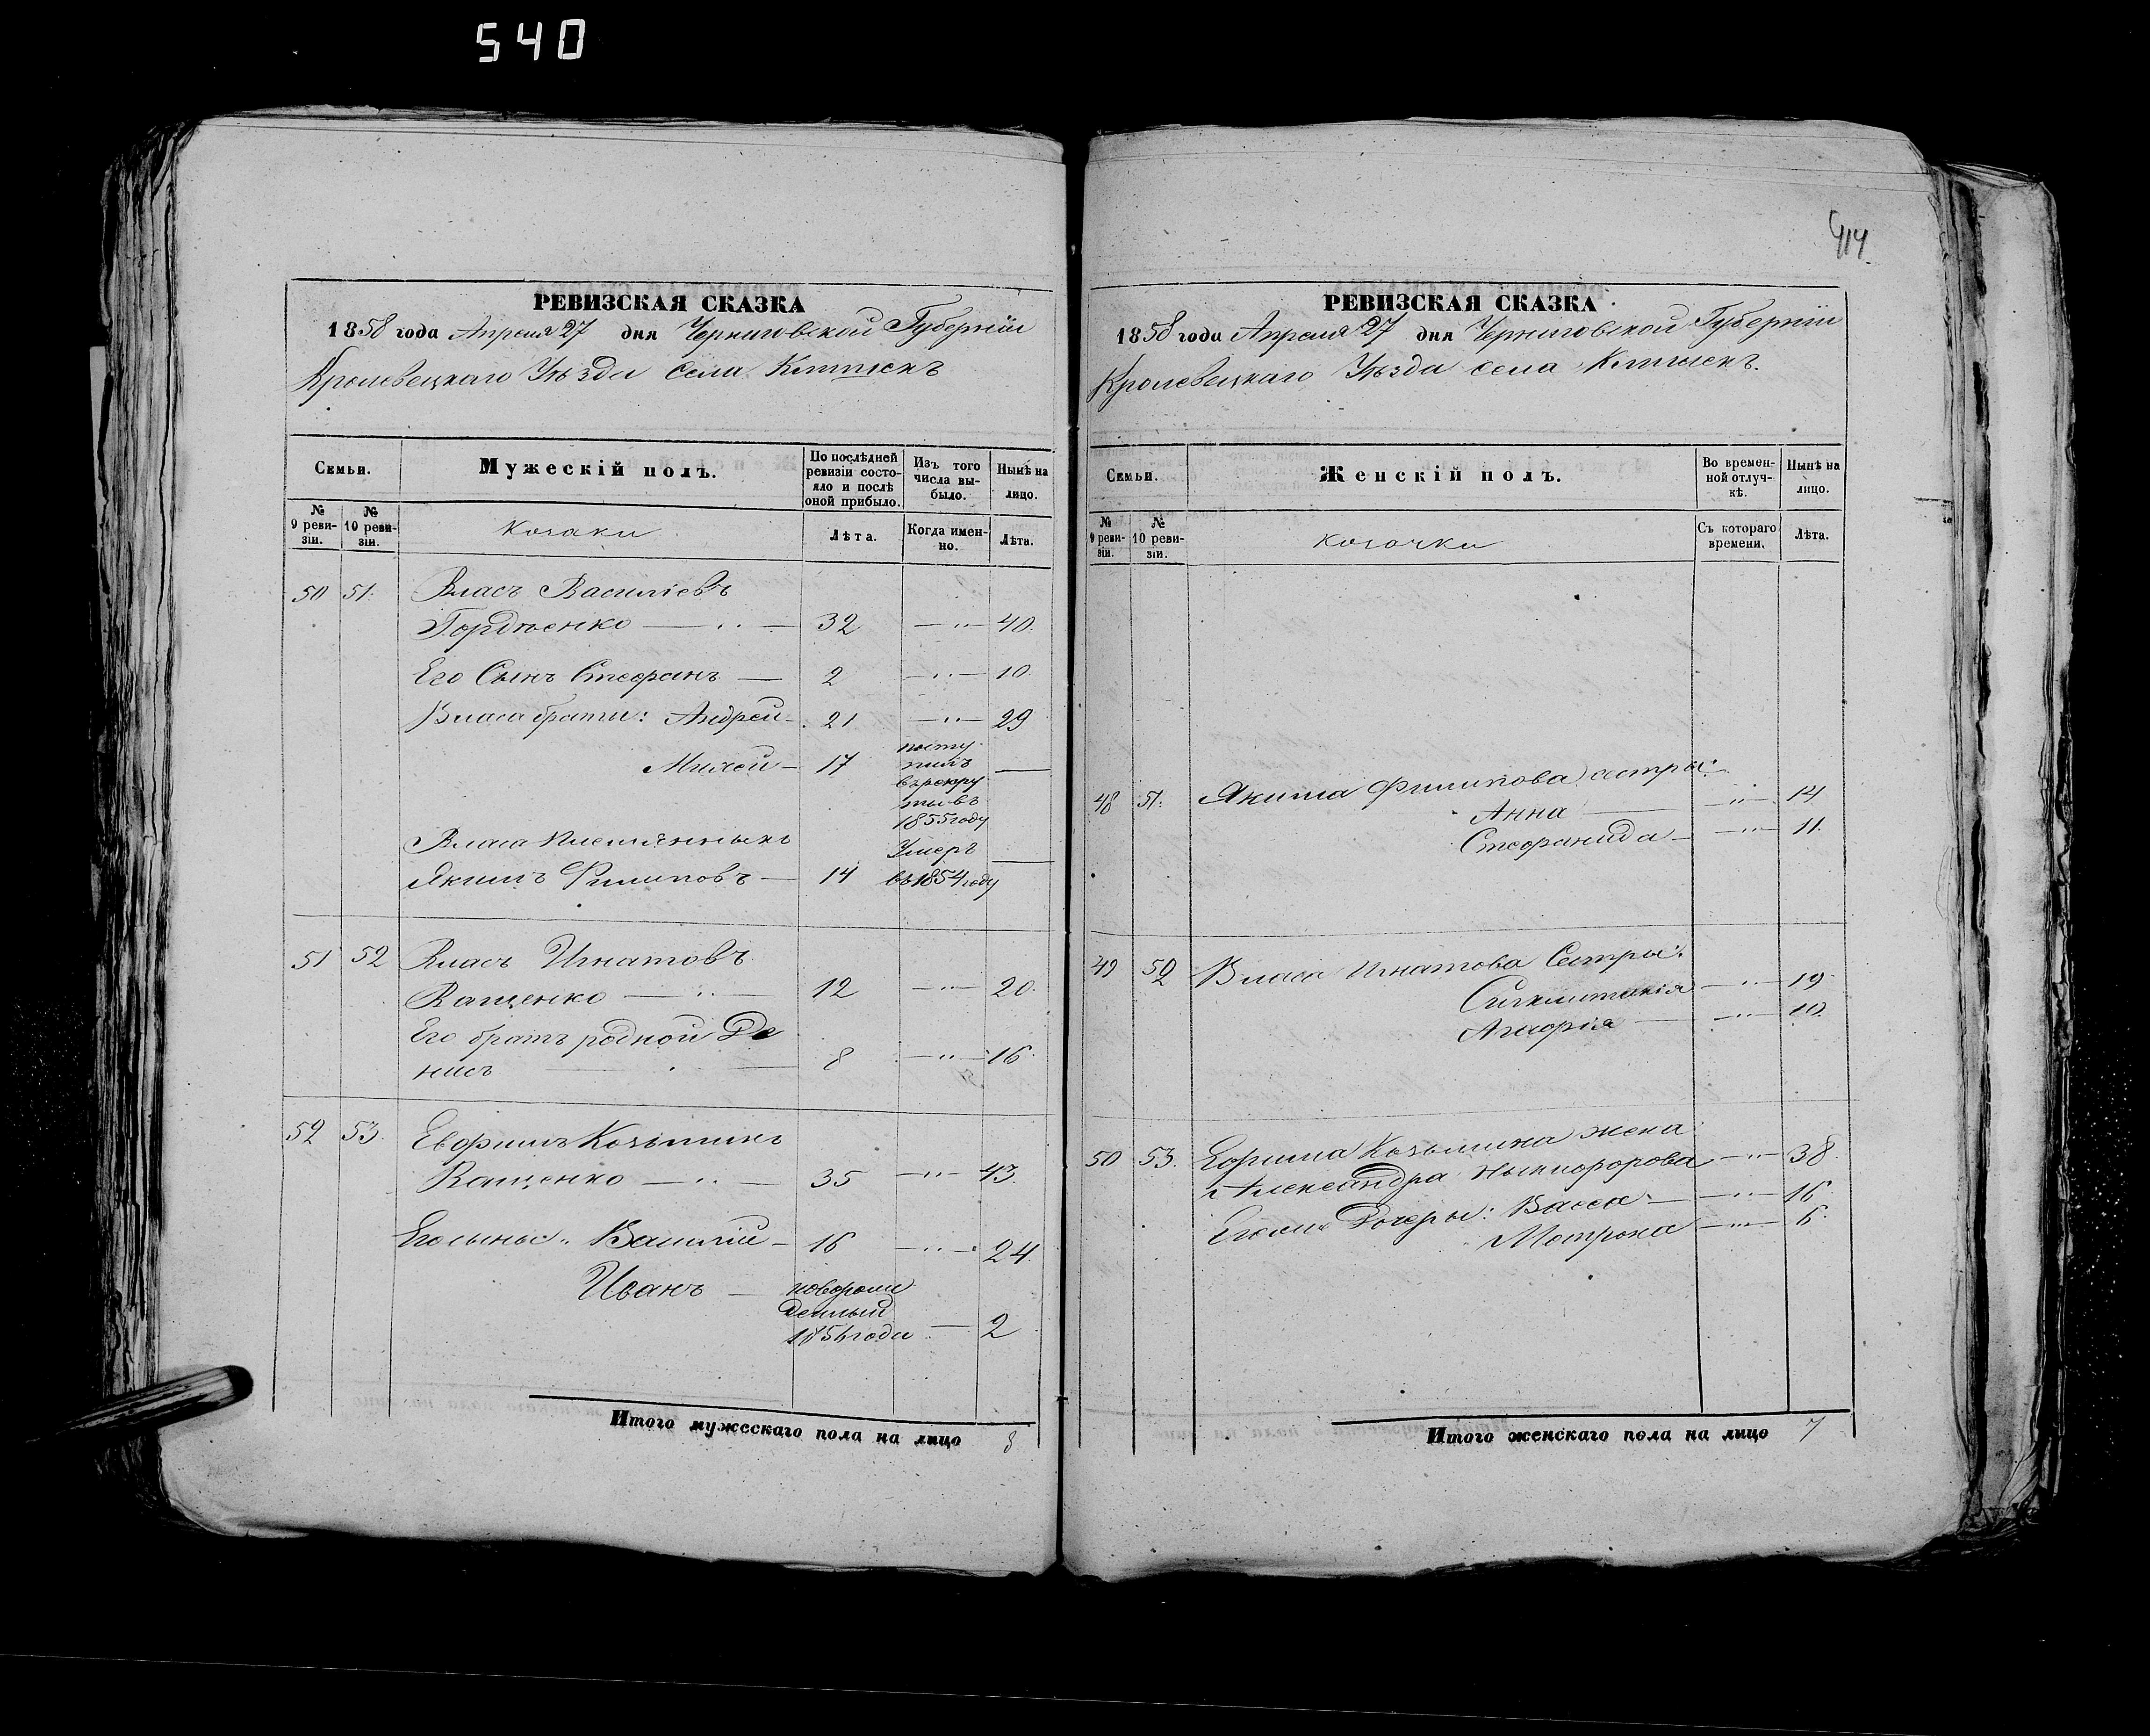 540
414
РЕВИЗСКАЯ СКАЗКА
1858 года Апреля 27 дня Черниговской Губерніи
Кролевецкаго Уѣзда села Клишекъ
Семьи.
Мужескій полъ.
По послѣдней ревизіи состояло и послѣ оной прибыло.
Изъ того числа выбыло.
Нынѣ на лицо.
№ 9 ревизіи.
№ 10 ревизіи.
Козаки
Лѣта.
Когда именно.
Лѣта.
50 51. Власъ Василіевъ
Гордѣенко 32 40.
Его Сынъ Стефанъ 2 10
Власа братья: Андрей 21 29
17 посту
пилъ
въ рекру
ты въ
1855 году
Власа племянникъ Умеръ
Якимъ Филиповъ 14 въ 1854 году
51 52 Власъ Игнатовъ
Ващенко 12 20.
Его братъ родной Де
нисъ 8 16.
52 53. Евфимъ Козьминъ
Ващенко 35 43.
Его сыны: Василій 16 24.
Иванъ новорож
денный
года 2
Итого мужескаго пола на лицо 8
РЕВИЗСКАЯ СКАЗКА
1858 года Апреля 27 дня Черниговской Губерніи
Кролевецкаго Уѣзда села Клишекъ.
Семьи.
Женскій полъ.
Во временной отлучкѣ.
Нынѣ на лицо.
№ 9 ревизіи.
№ 10 ревизіи.
козачки
Съ котораго времени.
Лѣта.
48 51. Якима Филипова сестры:
Анна 14
Стефанида 11.
49 52 Власа Игнатова Сестры:
19
10.
50 53. Ефима Козьмина жена
Александра Никифорова 38.
Его же Дочеры: Васса 16.
Мотрона 6.
Итого женскаго пола на лицо 7